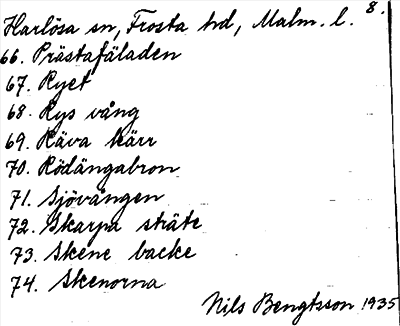 8.
Harlösa sn, Frosta hd, Malm. l.
66. Prästafäladen
67. Ryet
68. Rys vång
69. Räva kärr
70. Rödängabron
71. Sjövången
72. Skarpa sträte
73. Skene backe
74. Skenorna
Nils Bengtsson 1935